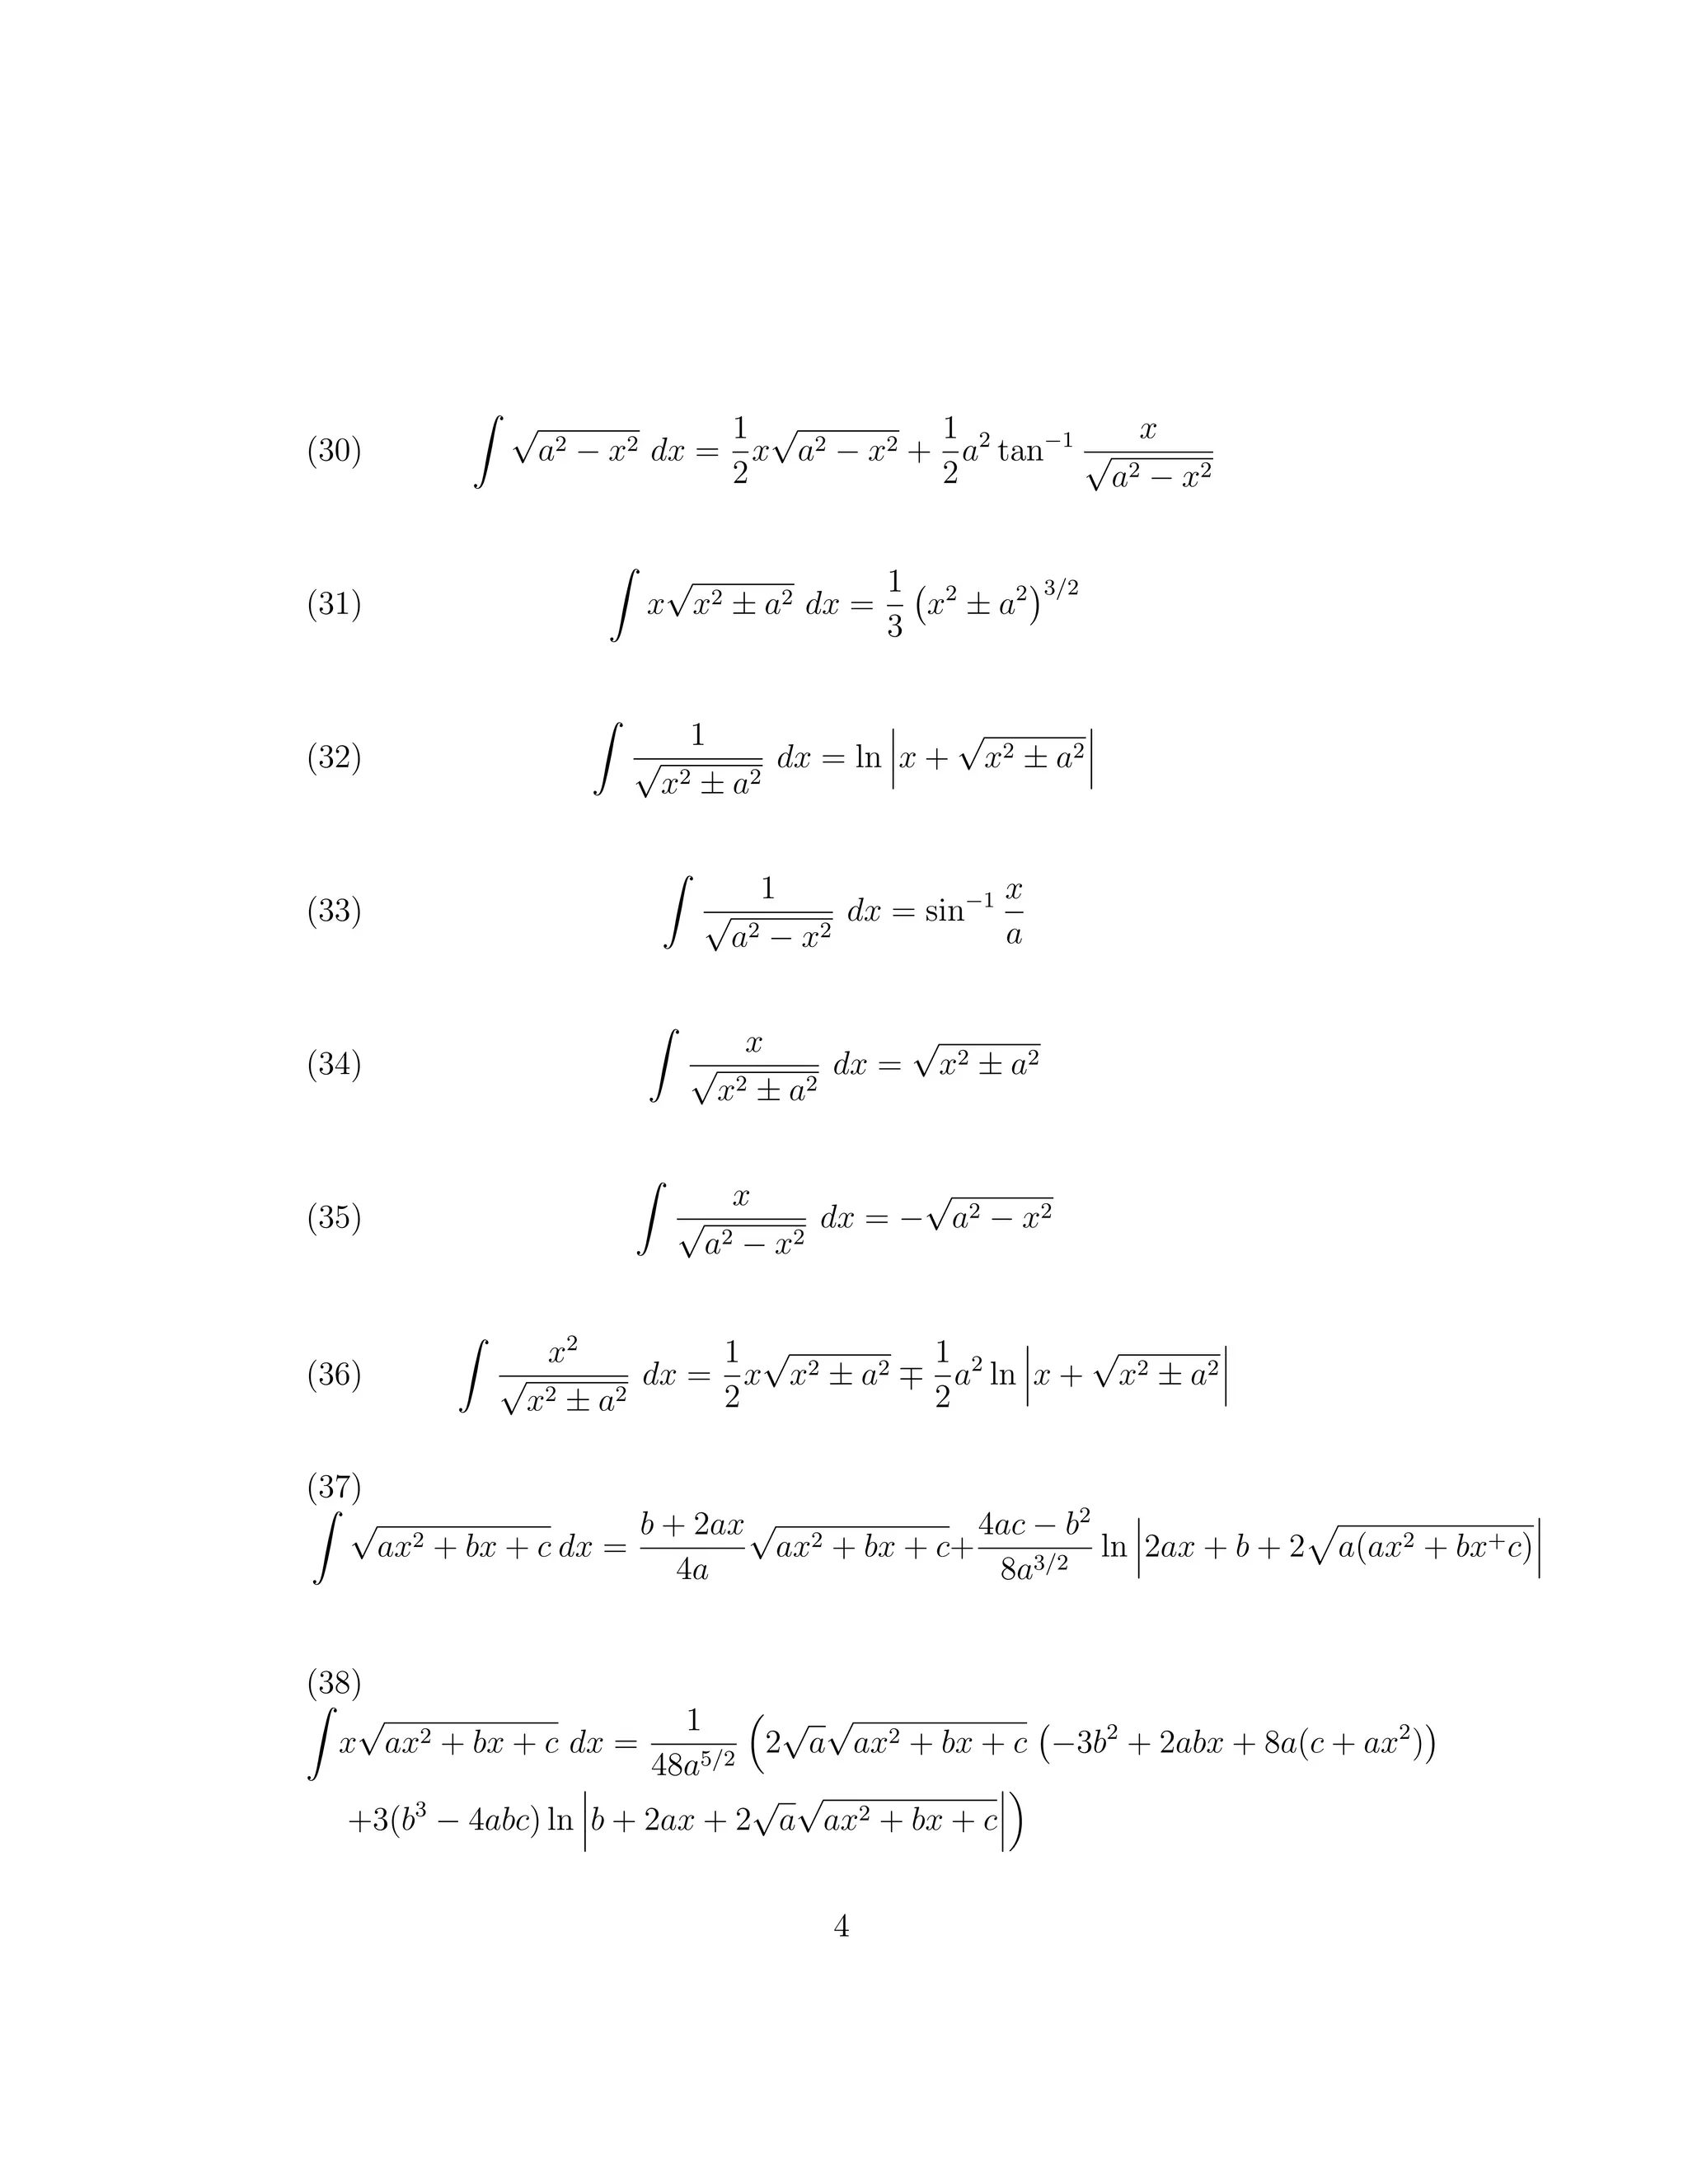 (30) $\int \sqrt{a^2 - x^2}\ dx = \frac{1}{2}x\sqrt{a^2 - x^2} + \frac{1}{2}a^2 \tan^{-1} \frac{x}{\sqrt{a^2 - x^2}}$
(31) $\int x\sqrt{x^2 \pm a^2}\ dx = \frac{1}{3}\left(x^2 \pm a^2\right)^{3/2}$
(32) $\int \frac{1}{\sqrt{x^2 \pm a^2}}\ dx = \ln\left|x + \sqrt{x^2 \pm a^2}\right|$
(33) $\int \frac{1}{\sqrt{a^2 - x^2}}\ dx = \sin^{-1} \frac{x}{a}$
(34) $\int \frac{x}{\sqrt{x^2 \pm a^2}}\ dx = \sqrt{x^2 \pm a^2}$
(35) $\int \frac{x}{\sqrt{a^2 - x^2}}\ dx = -\sqrt{a^2 - x^2}$
(36) $\int \frac{x^2}{\sqrt{x^2 \pm a^2}}\ dx = \frac{1}{2}x\sqrt{x^2 \pm a^2} \mp \frac{1}{2}a^2 \ln\left|x + \sqrt{x^2 \pm a^2}\right|$
(37)
$\int \sqrt{ax^2 + bx + c}\,dx = \frac{b + 2ax}{4a}\sqrt{ax^2 + bx + c} + \frac{4ac - b^2}{8a^{3/2}} \ln\left|2ax + b + 2\sqrt{a(ax^2 + bx^+c)}\right|$
(38)
$\int x\sqrt{ax^2 + bx + c}\ dx = \frac{1}{48a^{5/2}}\left(2\sqrt{a}\sqrt{ax^2 + bx + c}\left(-3b^2 + 2abx + 8a(c + ax^2)\right)\right.$
$\left.+3(b^3 - 4abc)\ln\left|b + 2ax + 2\sqrt{a}\sqrt{ax^2 + bx + c}\right|\right)$
4